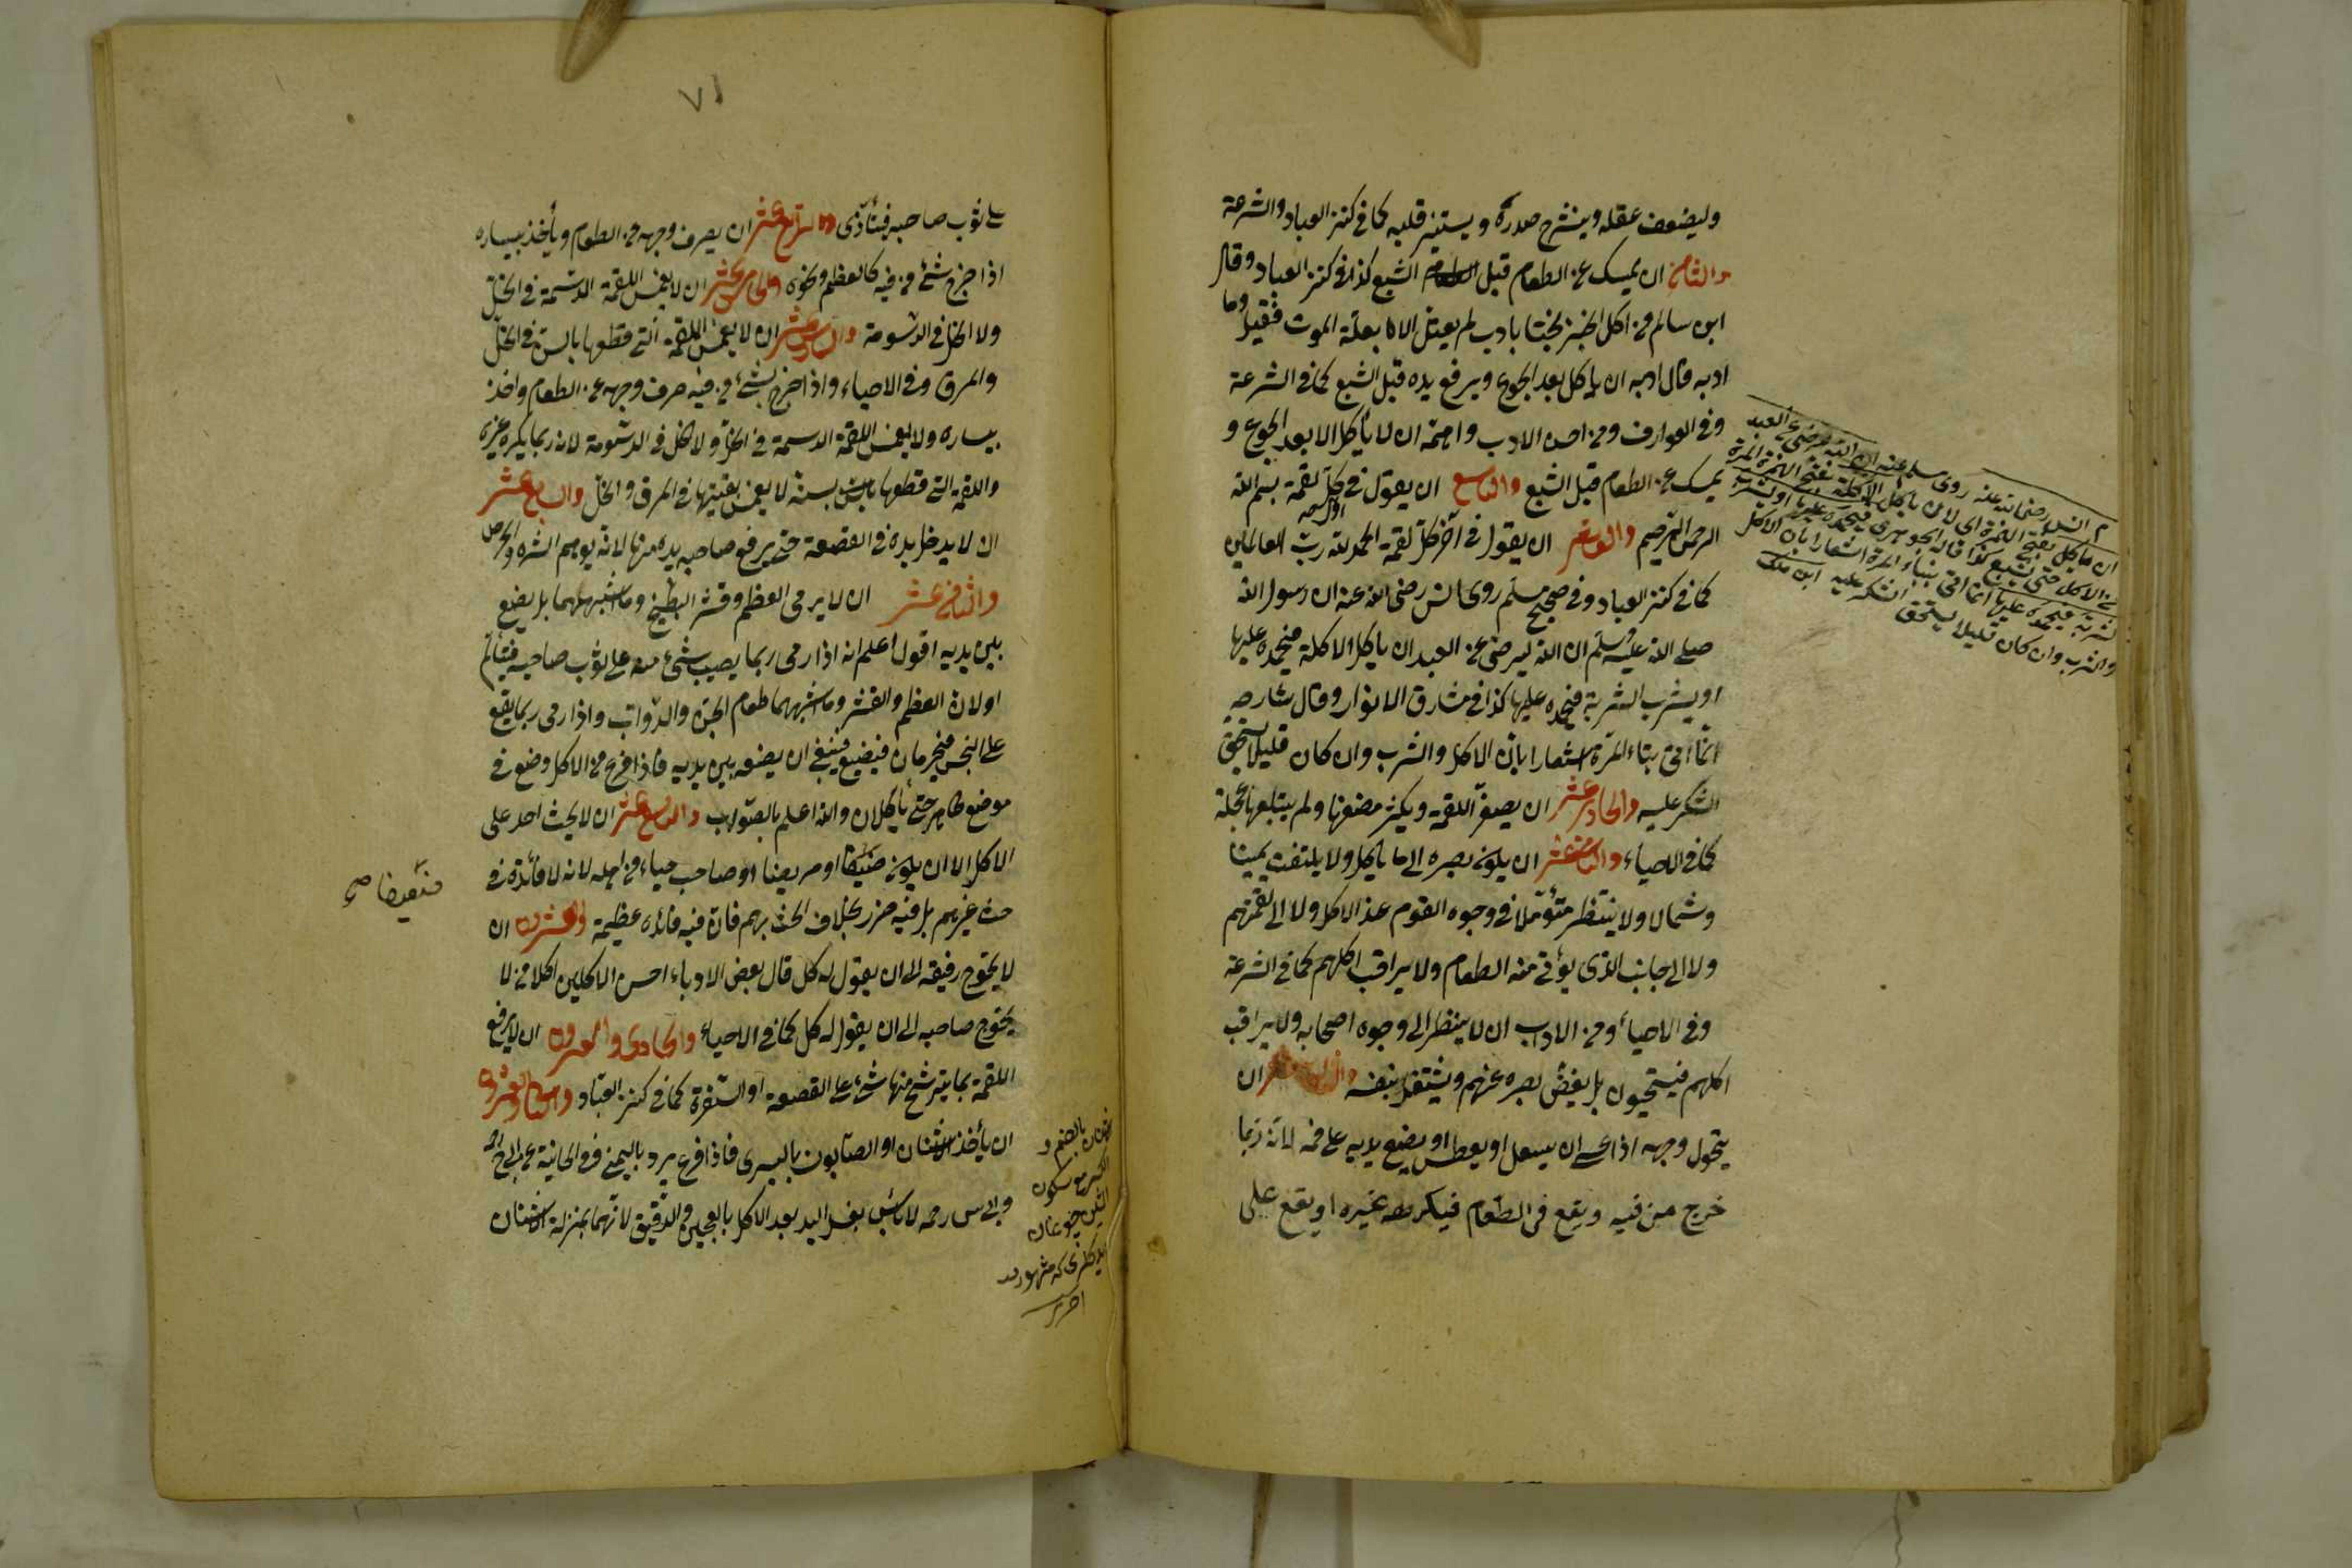 وليضعف عقله وينشرح صدره ويستنير قلبه كما في كنز العباد والشرعة
والثامن ان يمسك عن الطعام قبل الشبع كذا في كنز العباد وقال
ابن سالم من اكل الخبز بحتا بادب لم يعتل الا بعلة الموت فقيل وما
ادبه قال ادبه ان يأكل بعد الجوع ويرفع يده قبل الشبع كما في الشرعة
وفي العوارف ومن احسن الادب واهمه ان لا يأكل الا بعد الجوع و
يمسك عن الطعام قبل الشبع والتاسع ان يقول في كل لقمة بسم الله
الرحمن الرحيم والعاشر ان يقول في آخر كل لقمة الحمد لله رب العالمين
كما في كنز العباد وفي صحيح مسلم روى انس رضى الله عنه ان رسول الله
صلى الله عليه وسلم ان الله ليرضى عن العبد ان يأكل الاكلة فيحمده عليها
او يشرب الشربة فيحمده عليها كذا في مشارق الانوار وقال شارحه
انما اتى بتاء المرة اشعارا بان الاكل والشرب وان كان قليلا يستحق
الشكر عليه والحادي عشر ان يصغر اللقمة ويكثر مضغها ولم يبتلعها بعجلة
كما في الاحياء والثاني عشر ان يكون بصره الى ما يأكل ولا يلتفت يمينا
وشمالا ولا ينتظر متؤملا في وجوه القوم عند الاكل ولا الى لقمتهم
ولا الى جانب الذى يؤتى منه الطعام ولا يراقب اكلهم كما في الشرعة
وفي الاحياء ومن الادب ان لا ينظر الى وجوه اصحابه ولا يراقب
اكلهم فيستحيون بل يغض بصره عنهم ويشتغل بنفسه والثالث عشر ان
يتحول وجهه اذا ان يسعل او يعطس او يضع يديه على فمه لانه ربما
خرج من فيه ويقع في الطعام فيكرهه غيره او يقع على
انس رضى الله عنه روى مسلم عنه ان الله ليرضى عن العبد
ان يأكل بفتح الهمزة اى لان يأكل الاكلة بفتح الهمزة المرة
من الاكل حتى يشبع كذا قاله الجوهرى فيحمده عليها او يشرب
الشربة فيحمده عليها انما اتى بتاء المرة اشعارا بان الاكل
والشرب وان كان قليلا يستحق الشكر عليه ابن ملك
٧١
على ثوب صاحبه فيتأذى والرابع عشر ان يصرف وجهه عن الطعام ويأخذ بيساره
اذا خرج شئ من فيه كالعظم ونحوه والخامس عشر ان لا يغمس اللقمة الدسمة في الخل
ولا الخل في الدسومة والسادس عشر ان لا يغمس اللقمة التي قطعها بالسن في الخل
والمرق وفي الاحياء واذا خرج شئ من فيه صرف وجهه عن الطعام واخذ
بيساره ولا يغمس اللقمة الدسمة في الخل ولا الخل في الدسومة لانه ربما يكره غيره
واللقمة التي قطعها بسنه لا يغمس بقيتها في المرق والخل والسابع عشر
ان لا يدخل يده في القصعة حتى يرفع صاحبه يده منها لانه يوهم الشره والحرص
والثامن عشر ان لا يرمى العظم وقشر البطيخ وما اشبههما بل يضع
بين يديه اقول اعلم انه اذا رمى ربما يصيب شئ منه على ثوب صاحبه فيتألم
او لان العظم والقشر وما اشبههما طعام الجن والدواب واذا رمى ربما يقع
على النجس فيحرمان فيضيع فينبغي ان يضعه بين يديه فاذا فرغ من الاكل وضع في
موضع طاهر حتى يأكلان والله اعلم بالصواب والتاسع عشر ان لا يحث احد على
الاكل الا ان يكون ضيفا او مريضا او صاحب حياء من اهله لانه لا فائدة في
حث غيرهم بل فيه ضرر بخلاف الحث بهم فان فيه فائدة عظيمة والعشرون ان
لا يحوج رفيقه الى ان يقول له كل قال بعض الادباء احسن الاكلين اكلا من لا
يحوج صاحبه الى ان يقول له كل كما في الاحياء والحادى والعشرون ان لا يرفع
اللقمة بما يترشح منها شئ على القصعة او السفرة كما في كنز العباد والثانى والعشرون
ان يأخذ الاشنان او الصابون باليسرى فاذا فرغ باليمنى وفي الخانية عن ابى ح
وابى س رحمه لا بأس بغسل اليد بعد الاكل بالعجين والدقيق لانهما بمنزلة الاشنان
بالضم و
اخرى